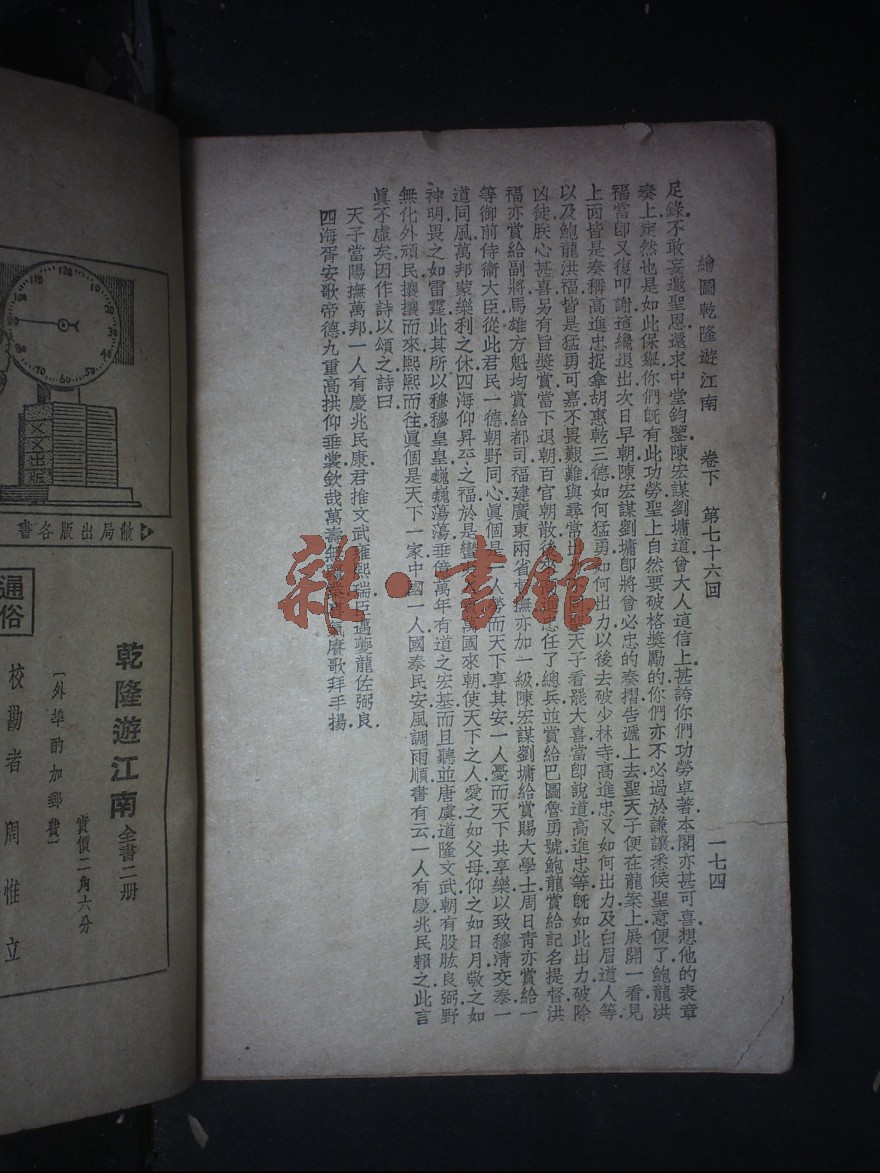 繪圖乾隆遊江南 卷下 第七十六回 一七四
足錄不敢妄邀聖恩還求中堂鈞鑒陳宏謀劉墉道曾大人這信上甚誇你們功勞卓著本閣亦甚可喜想他的表章
奏上定然也是如此保舉你們旣有此功勞聖上自然要破格獎勵的你們亦不必過於謙讓悉候聖意便了鮑龍洪
福當卽又復叩謝這纔退出次日早朝陳宏謀劉墉卽將曾必忠的奏摺告遞上去聖天子便在龍案上展開一看見
上面皆是奏稱高進忠捉拿胡惠乾三德如何猛勇如何出力以後去破少林寺高進忠又如何出力及白眉道人等
以及鮑龍洪福皆是猛勇可嘉不畏艱難與尋常出 聖天子看罷大喜當卽說道高進忠等旣如此出力破除
凶徒朕心甚喜另有旨獎賞當下退朝百官朝散後 進忠任了總兵並賞給巴圖魯勇號鮑龍賞給記名提督洪
福亦賞給副將馬雄方魁均賞給都司福建廣東兩省 撫亦加一級陳宏謀劉墉給賞賜大學士周日青亦賞給一
等御前侍衛大臣從此君民一德朝野同心眞個是一人勞而天下享其安一人憂而天下共享樂以致穆清交泰一
道同風萬邦蒙樂利之休四海仰昇平之福於是 國來朝使天下之人愛之如父母仰之如日月敬之如
神明畏之如雷霆此其所以穆穆皇皇巍巍蕩蕩垂 萬年有道之宏基而且聽並唐虞道隆文武朝有股肱良弼野
無化外頑民攘攘而來熙熙而往眞個是天下一家中國一人國泰民安風調雨順書有云一人有慶兆民賴之此言
眞不虛矣因作詩以頌之詩曰
天子當陽撫萬邦一人有慶兆民康君推文武雍熙瑞臣邁夔龍佐弼良
四海胥安歌帝德九重高拱仰垂裳欽哉萬壽無 賡歌拜手揚
雜·書館
120
110
100
90
80
70
60
50
0
文文出版
▷敝局出版各書
通俗
乾隆遊江南 全書二册
實價二角六分
〔外埠酌加郵費〕
校勘者 周惟立